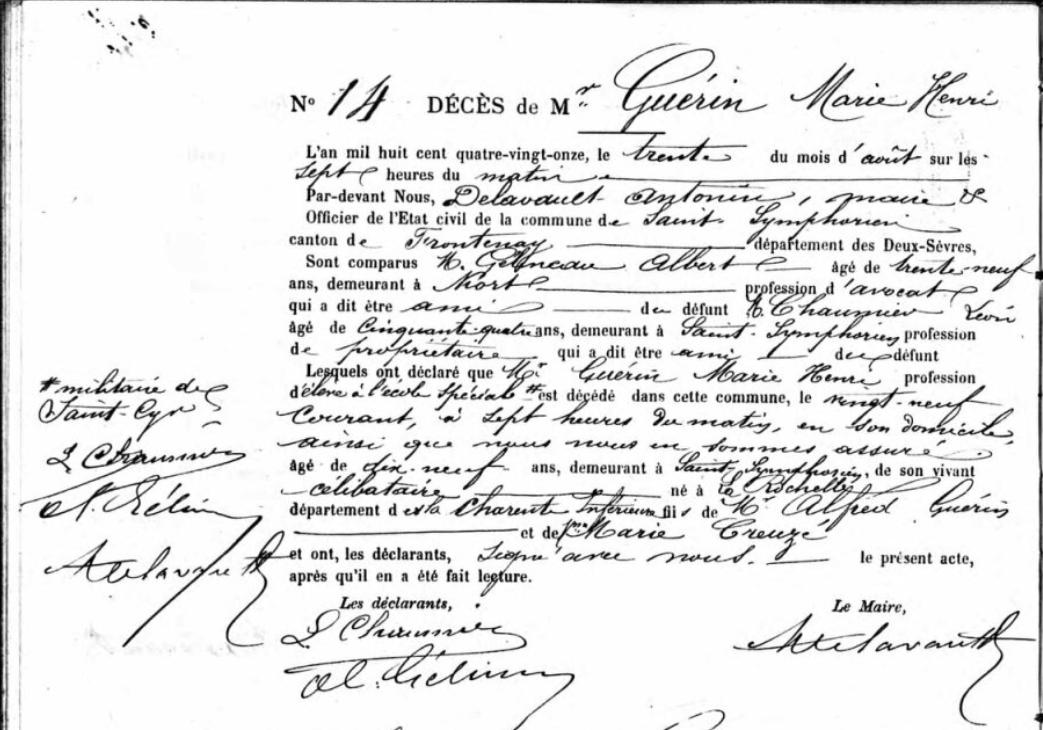 N° 14 DÉCÈS de Mr Guérin Marie Henri
L'an mil huit cent quatre-vingt-onze, le trente du mois d'août sur les
sept heures du matin
Par-devant Nous, Delavault Antonin, maire &
Officier de l'Etat civil de la commune de Saint-Symphorien
canton de Frontenay département des Deux-Sèvres,
Sont comparus M. Gélineau Albert âgé de trente-neuf
ans, demeurant à Niort profession d'avocat
qui a dit être ami du défunt & Chaumier Léon
âgé de Cinquante-quatre ans, demeurant à Saint-Symphorien profession
de propriétaire qui a dit être ami du défunt
Lesquels ont déclaré que Mr Guérin Marie Henri profession
d'élève à l'école spéciale # est décédé dans cette commune, le vingt-neuf
courant, à sept heures du matin, en son domicile,
ainsi que nous nous en sommes assuré.
âgé de dix-neuf ans, demeurant à Saint-Symphorien, de son vivant
célibataire né à La Rochelle
département de la Charente Inférieure fils de Mr Alfred Guérin
et de Marie Creuzé
et ont, les déclarants, signé avec nous. le présent acte,
après qu'il en a été fait lecture.
Les déclarants, Le Maire,
L Chaumier
A. Gélineau
A Delavault
# militaire de
Saint-Cyr
L Chaumier
A. Gélineau
A Delavault